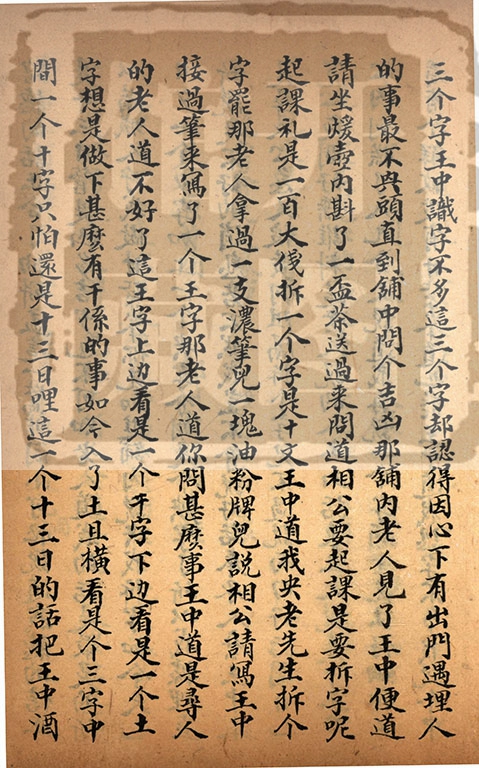 三个字王中識字不多這三个字却認得因心下有出門遇埋人
的事最不興頭直到舖中問个吉凶那舖內老人見了王中便道
請坐煖壺內斟了一盃茶送過来問道相公要起課是要拆字呢
起課礼是一百大伐拆一个字是十文王中道我央老先生拆个
字罷那老人拿過一支濃筆兒一塊油粉牌兒説相公請寫王中
接過筆来寫了一个王字那老人道你問甚麽事王中道是尋人
的老人道不好了這王字上边看是一个干字下边看是一个土
字想是做下甚麽有干係的事如今入了土且橫看是个三字中
間一个十字只怕還是十三日哩這一个十三日的話把王中酒